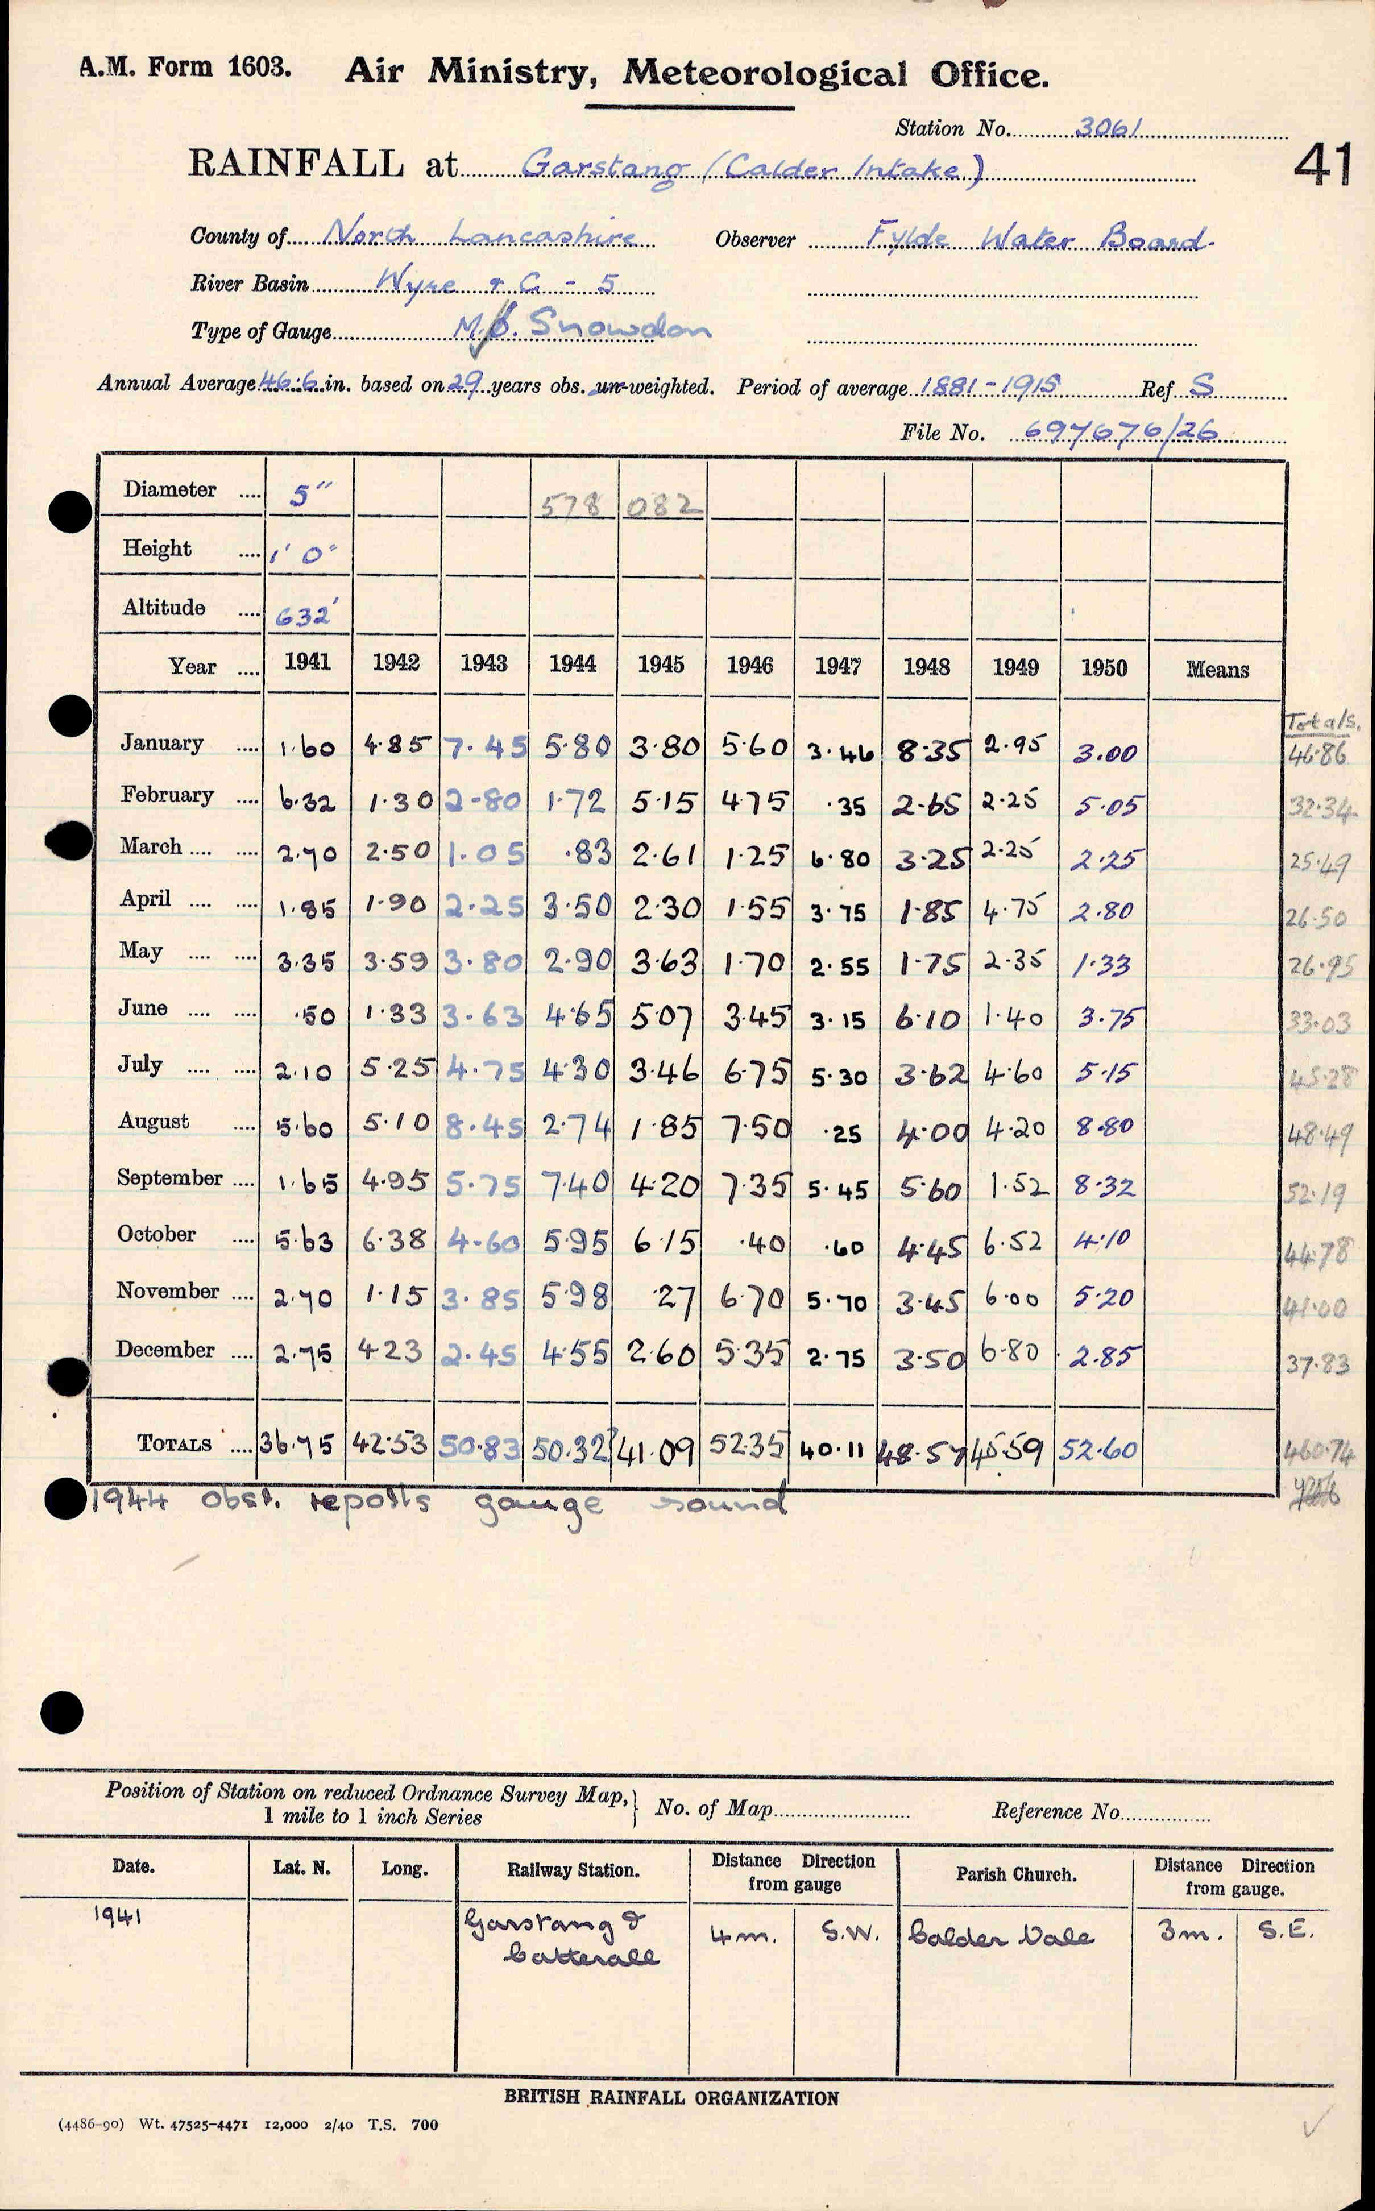 A.M. Form 1603. Air Ministry, Meteorological Office.
Station No. 3061
41
RAINFALL at Garstang (Calder Intake)
County of North Lancashire Observer Fylde Water Board.
River Basin Wyre & C - 5
Type of Gauge M.O. Snowdon
Annual Average 46.6 in. based on 29 years obs. un-weighted. Period of average 1881-1915 Ref S
File No. 697676/26
Diameter .... 5" 578 082
Height .... 1' 0"
Altitude .... 632'
Year .... 1941 1942 1943 1944 1945 1946 1947 1948 1949 1950 Means
Totals.
January .... 1.60 4.85 7.45 5.80 3.80 5.60 3.46 8.35 2.95 3.00 46.86
February .... 6.32 1.30 2.80 1.72 5.15 4.75 .35 2.65 2.25 5.05 32.34
March .... .... 2.70 2.50 1.05 .83 2.61 1.25 6.80 3.25 2.25 2.25 25.49
April .... .... 1.85 1.90 2.25 3.50 2.30 1.55 3.75 1.85 4.75 2.80 26.50
May .... .... 3.35 3.59 3.80 2.90 3.63 1.70 2.55 1.75 2.35 1.33 26.95
June .... .... .50 1.33 3.63 4.65 5.07 3.45 3.15 6.10 1.40 3.75 33.03
July .... .... 2.10 5.25 4.75 4.30 3.46 6.75 5.30 3.62 4.60 5.15 45.28
August .... 5.60 5.10 8.45 2.74 1.85 7.50 .25 4.00 4.20 8.80 48.49
September .... 1.65 4.95 5.75 7.40 4.20 7.35 5.45 5.60 1.52 8.32 52.19
October .... 5.63 6.38 4.60 5.95 6.15 .40 .60 4.45 6.52 4.10 44.78
November .... 2.70 1.15 3.85 5.98 .27 6.70 5.70 3.45 6.00 5.20 41.00
December .... 2.75 4.23 2.45 4.55 2.60 5.35 2.75 3.50 6.80 2.85 37.83
TOTALS .... 36.75 42.53 50.83 50.32? 41.09 52.35 40.11 48.57 45.59 52.60 460.74
1944 obsr. reports gauge sound
Position of Station on reduced Ordnance Survey Map,
1 mile to 1 inch Series
No. of Map Reference No.
Date. Lat. N. Long. Railway Station. Distance Direction from gauge Parish Church. Distance Direction from gauge.
1941 Garstang & Catterall 4m. S.W. Calder Vale 3m. S.E.
BRITISH RAINFALL ORGANIZATION
(4486-90) Wt. 47525-4471 12,000 2/40 T.S. 700